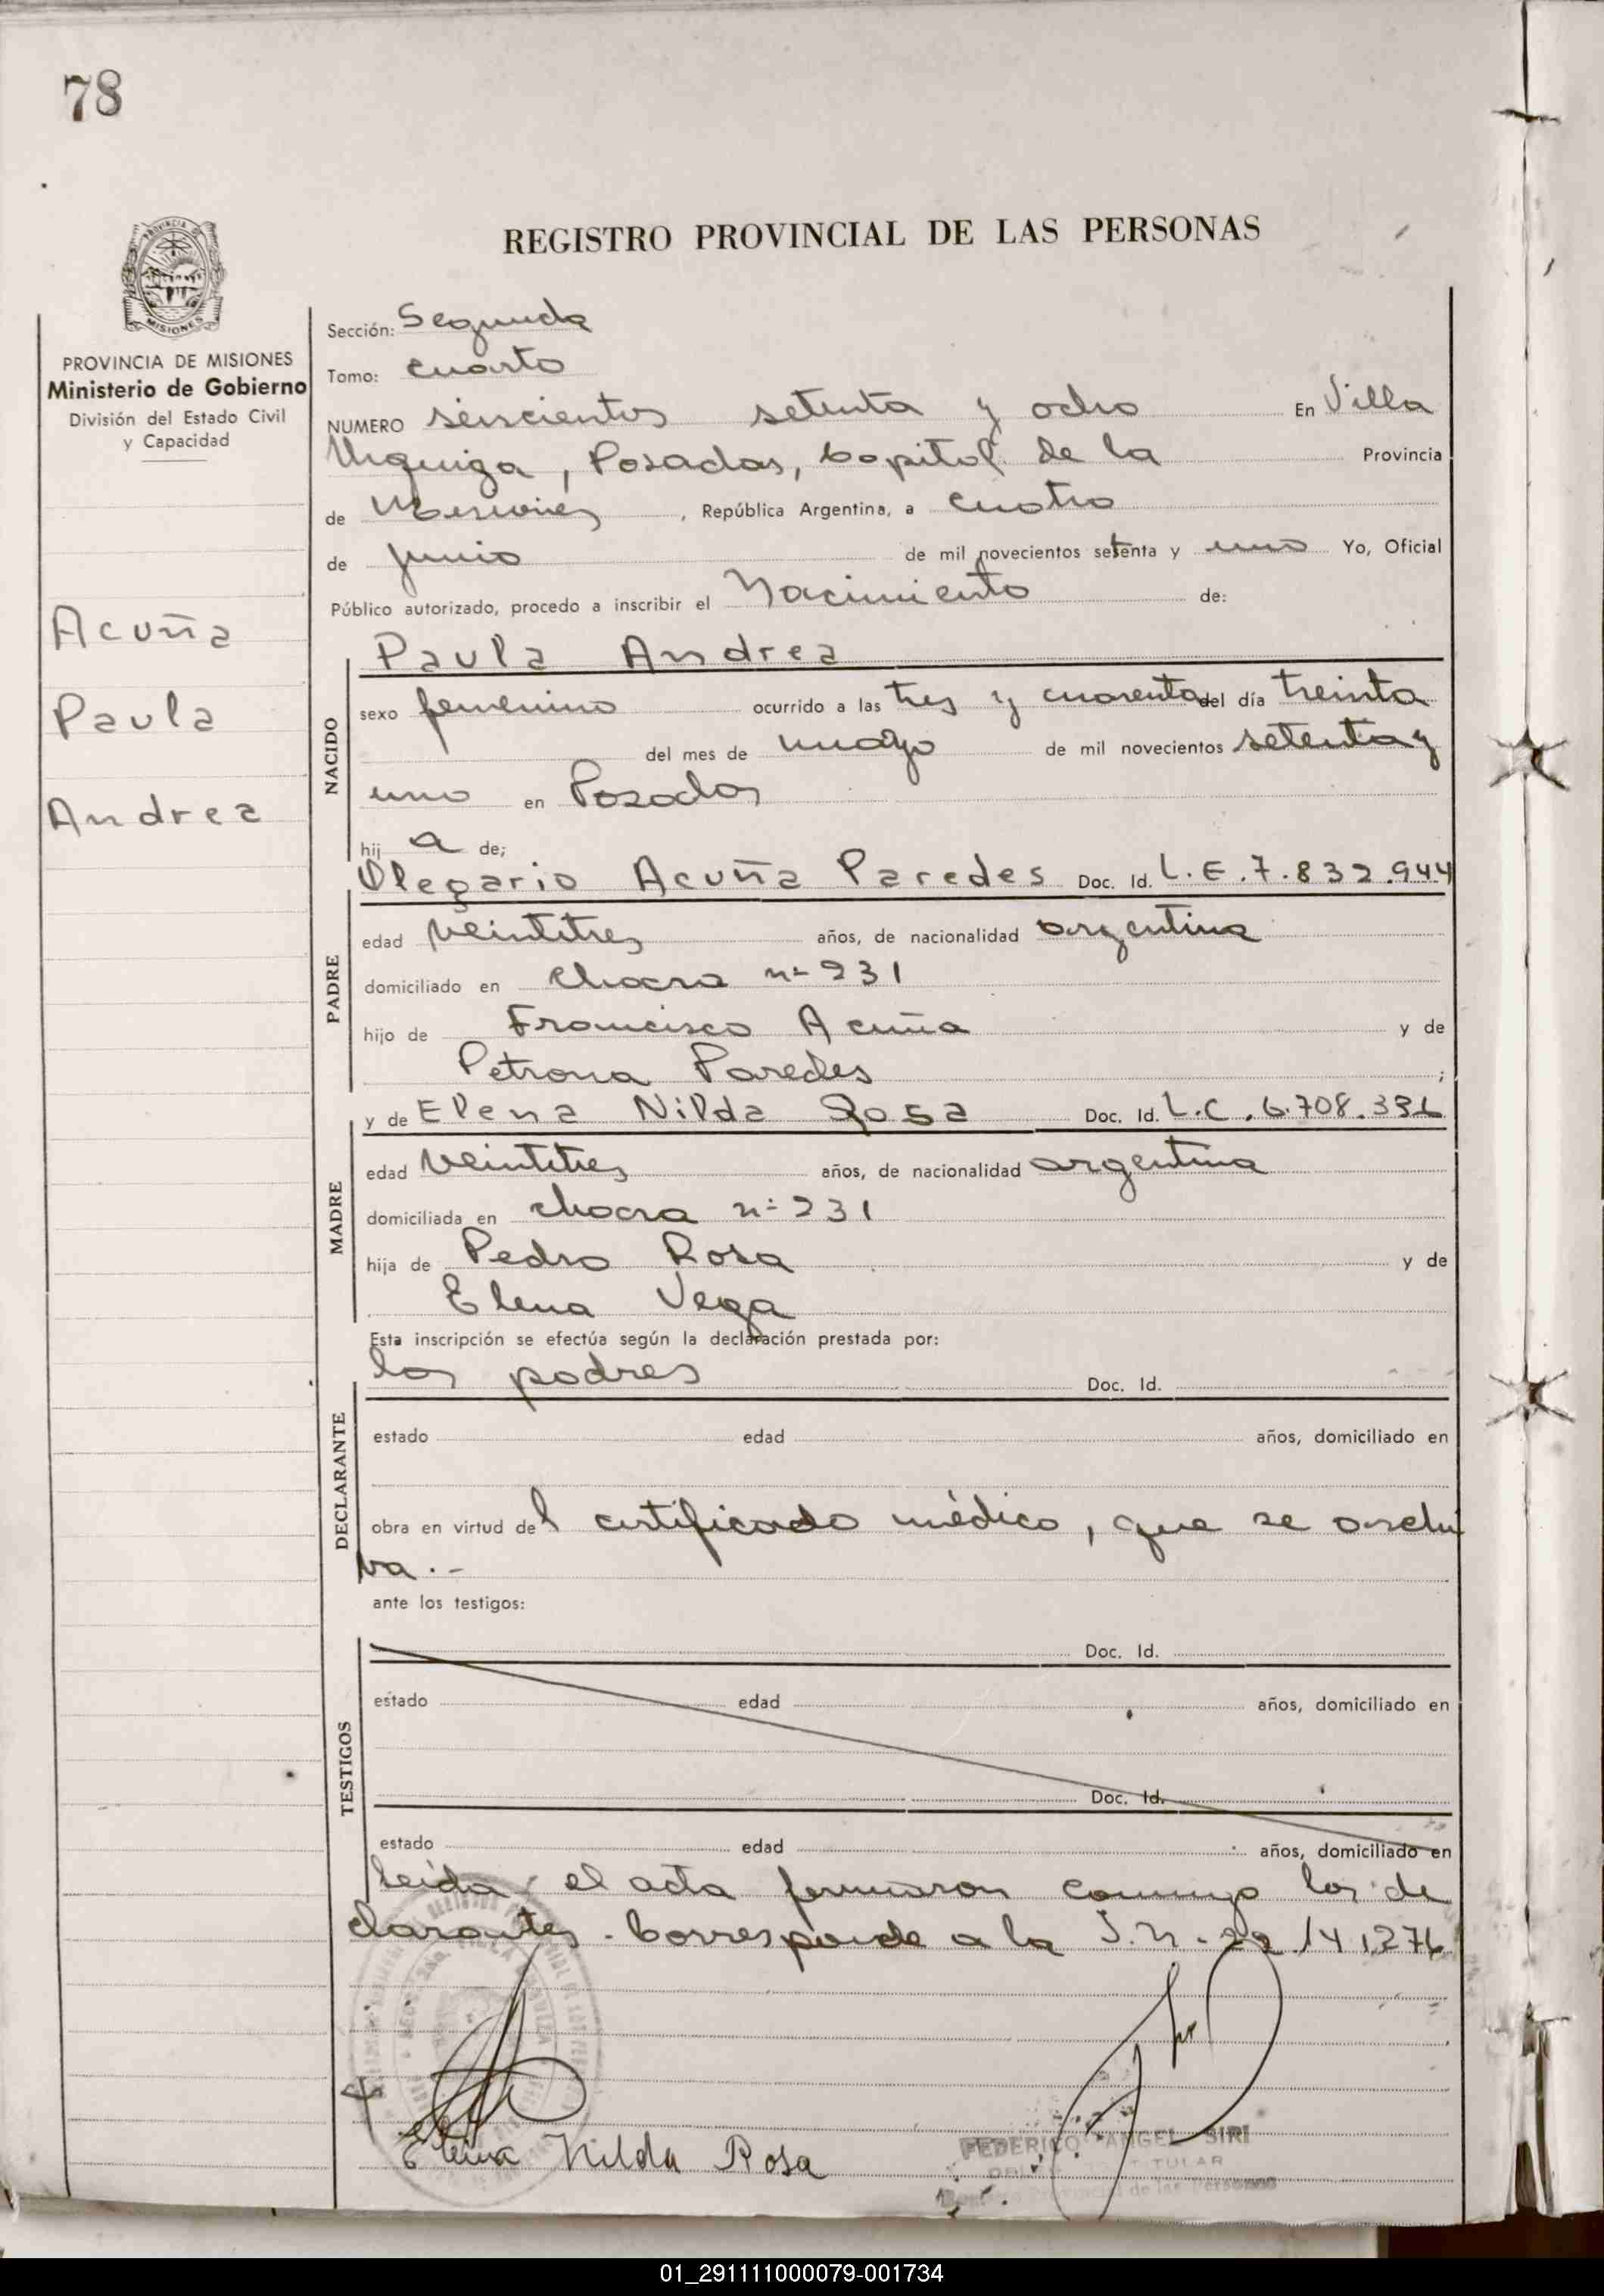 78
REGISTRO PROVINCIAL DE LAS PERSONAS
MISIONES
PROVINCIA DE MISIONES
Ministerio de Gobierno
División del Estado Civil
y Capacidad
Acuña
Paula
Andrea
Sección: Segunda
Tomo: Cuarto
NUMERO seiscientos setenta y ocho En Villa
Urquiza, Posadas, Capital de la Provincia
de Misiones, República Argentina, a cuatro
de junio de mil novecientos setenta y uno Yo, Oficial
Público autorizado, procedo a inscribir el Nacimiento de:
Paula Andrea
NACIDO
sexo femenino ocurrido a las tres y cuarenta del día treinta
del mes de mayo de mil novecientos setenta y
uno en Posadas
hij a de;
Olegario Acuña Paredes Doc. Id. L.E.7.832.944
PADRE
edad veintitres años, de nacionalidad argentina
domiciliado en chacra nº 231
hijo de Francisco Acuña y de
Petrona Paredes ;
y de Elena Nilda Rosa Doc. Id. L.C. 6.708.
MADRE
edad veintitres años, de nacionalidad argentina
domiciliada en chacra nº 231
hija de Pedro Rosa y de
Elena Vega
Esta inscripción se efectúa según la declaración prestada por:
los padres Doc. Id.
DECLARANTE
estado edad años, domiciliado en
obra en virtud del certificado médico, que se archi
va.-
ante los testigos:
Doc. Id.
TESTIGOS
estado edad años, domiciliado en
Doc. Id.
estado edad años, domiciliado en
leida el acta firmaron conmigo los de
clarantes. Corresponde a la
Elena Nilda Rosa
FEDERICO ANGEL SIRI
TITULAR
Provincial de las Personas
01_291111000079-001734